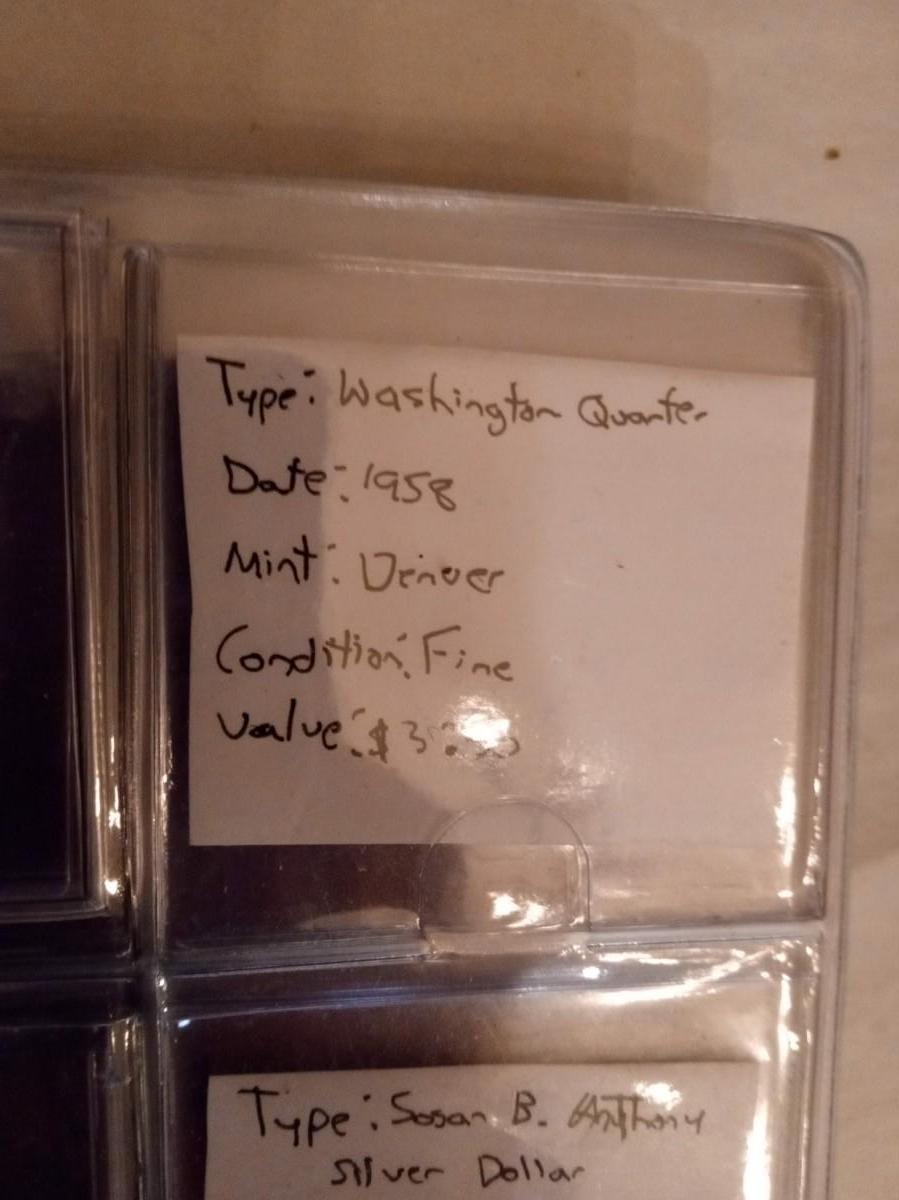 Type: Washington Quarter
Date: 1958
Mint: Denver
Condition: Fine
Value:
Type: Susan B. Anthony
Silver Dollar